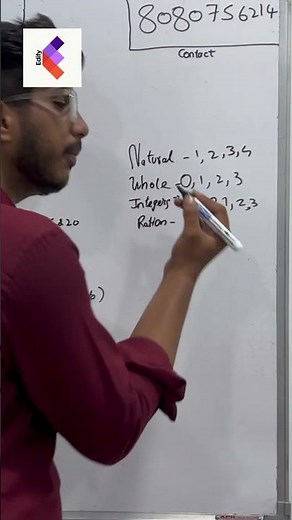 Edify
8080756214
Contact
Natural - 1, 2, 3, 4
Whole - 0, 1, 2, 3
Integers 1, 2, 3
Ration -